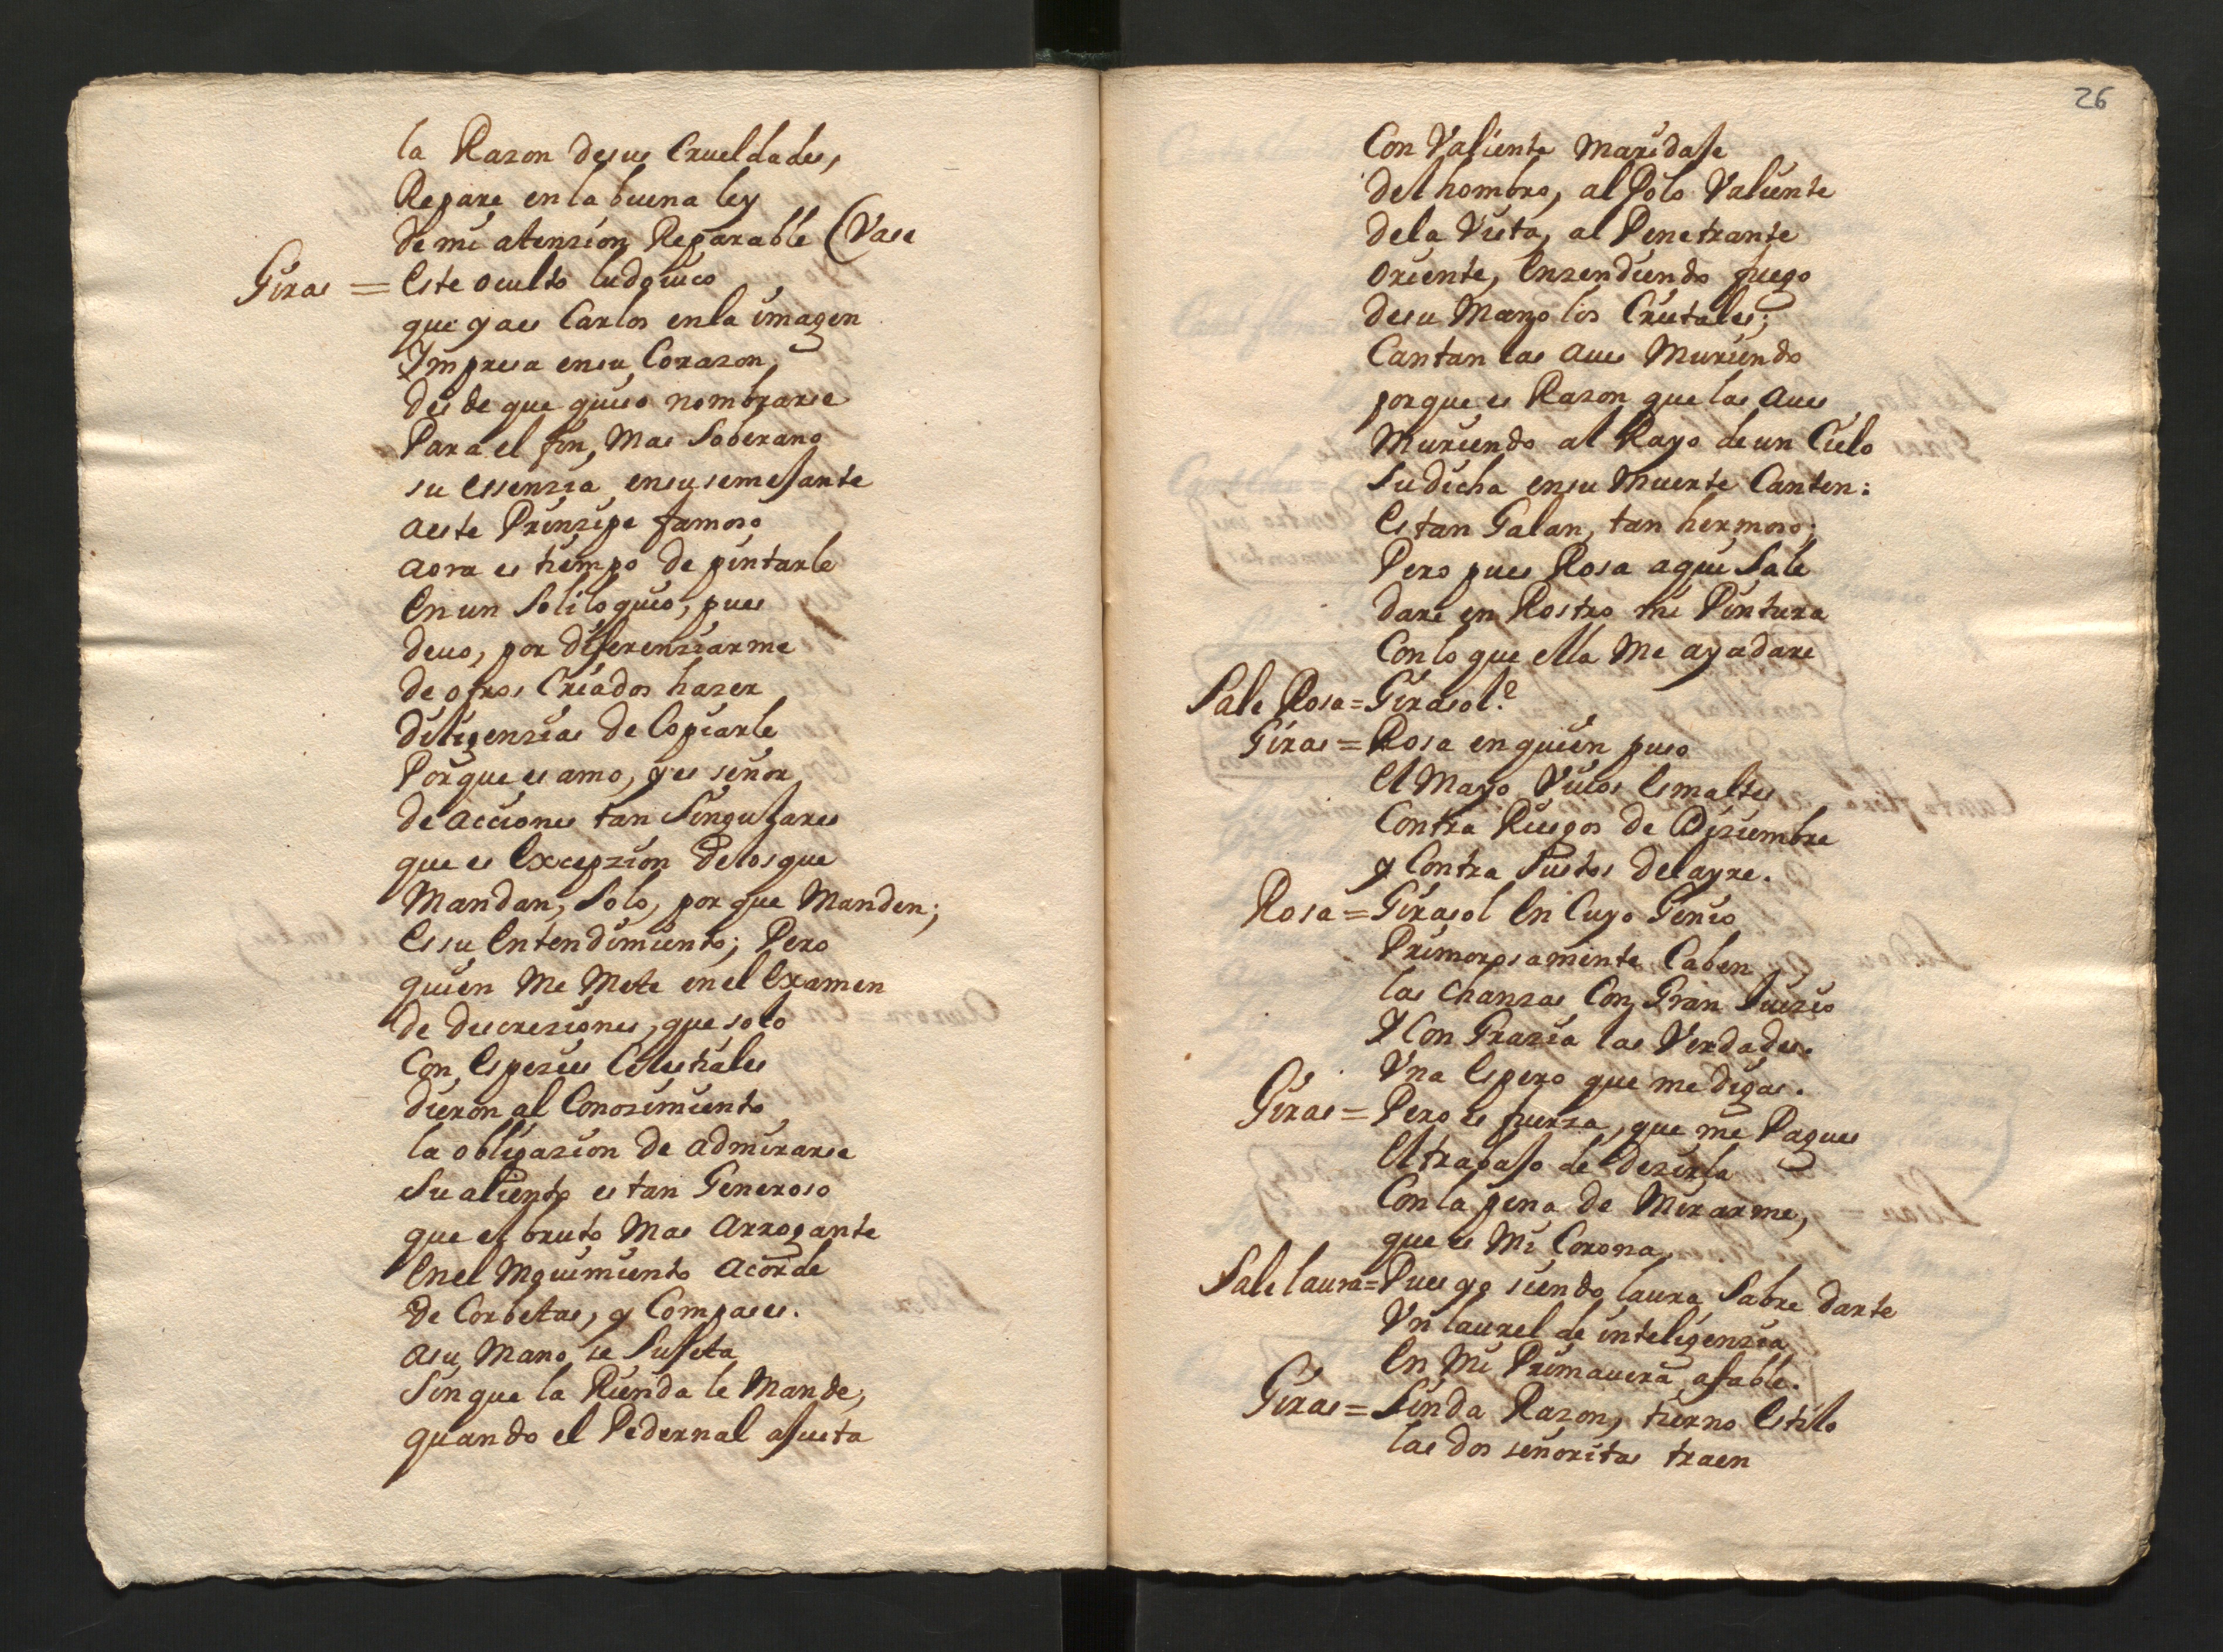 la Razon desus Crueldades,
Repare en la buena ley
de mi atenzion Reparable (Vase
Giras = Este oculto ludouico
que ya es Carlos enla imagen
Impresa ensu Corazon,
desde que quiso nombrarse
Para el fin, Mas Soberano
su essenzia ensu semejante
aeste Prinzipe famoso
aora es tiempo de pintarle
En un Soliloquio, pues
deuo, por diferenziarme
de otros Criados hazer
diligenzias de Copiarle
Porque es amo, y es señor
de acciones tan Singulares
que es Excepzion delos que
Mandan, Solo, por que Manden;
Es su Entendimiento; Pero
quien Me Mete enel Examen
de discreziones, que solo
Con Espezies Celestiales
dieron al Conozimiento
la obligazion de admirarse
Su aliento es tan Generoso
que el bruto Mas arrogante
Enel Mouimiento acorde
de Corbetas, y Compases.
asu Mano se Sujeta
Sin que la Rienda le Mande,
quando el Pedernal ajusta
26
Con Valiente Maridaje
del hombro, al Polo Valiente
dela Vista, al Penetrante
oriente, Enzendiendo fuego
desu Mayo los Cristales;
Cantan las aues Muriendo
porque es Razon que las aues
Muriendo al Rayo de un Cielo
Su dicha ensu Muerte Canten:
Es tan Galan, tan hermoso;
Pero pues Rosa aqui Sale
dare en Rostro mi Pintura
Con lo que ella Me ayadare
Sale Rosa = Girasol?
Giras = Rosa en quien puso
El Mayo Viuos Esmaltes
Contra Riesgos de Diziembre
y Contra Sustos delayre.
Rosa = Girasol En Cuyo Genio
Primorosamente Caben
las Chanzas Con Gran Juizio
Y Con Grazia las Verdades.
Vna Espero que me digas.
Giras = Pero es fuerza, que me Pagues
El trabajo de dezirla
Con la pena de Mirarme,
que es Mi Corona,
Sale laura = Pues yo siendo laura Sabre darte
Vn laurel de inteligenzia
En Mi Primauera afable.
Giras = Linda Razon, tierno Estilo
las dos señoritas traen